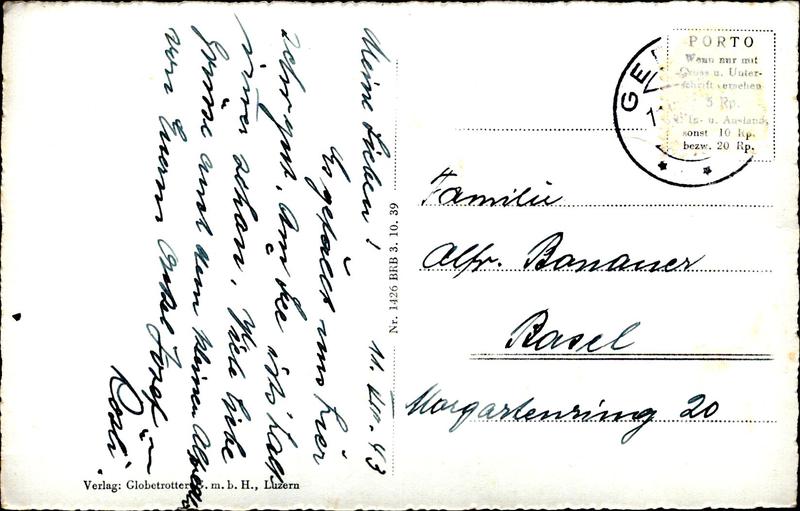 Meine Lieben!
11. Apr. 43
Es gefällt uns hier
sehr gut. Am See ists halt
immer schön. Viele liebe
Grüsse auch dem kleinen
von Euerm Onkel Josef
Rosli.
Nr. 1426 BRB 3. 10. 39
Verlag: Globetrotter G. m. b. H., Luzern
GE
PORTO
Wenn nur mit
Gruss u. Unter-
schrift versehen
5 Rp.
Is- u. Ausland,
sonst 10 Rp.
bezw. 20 Rp.
Familie
Alfr. Bonauer
Basel
Morgartenring 20